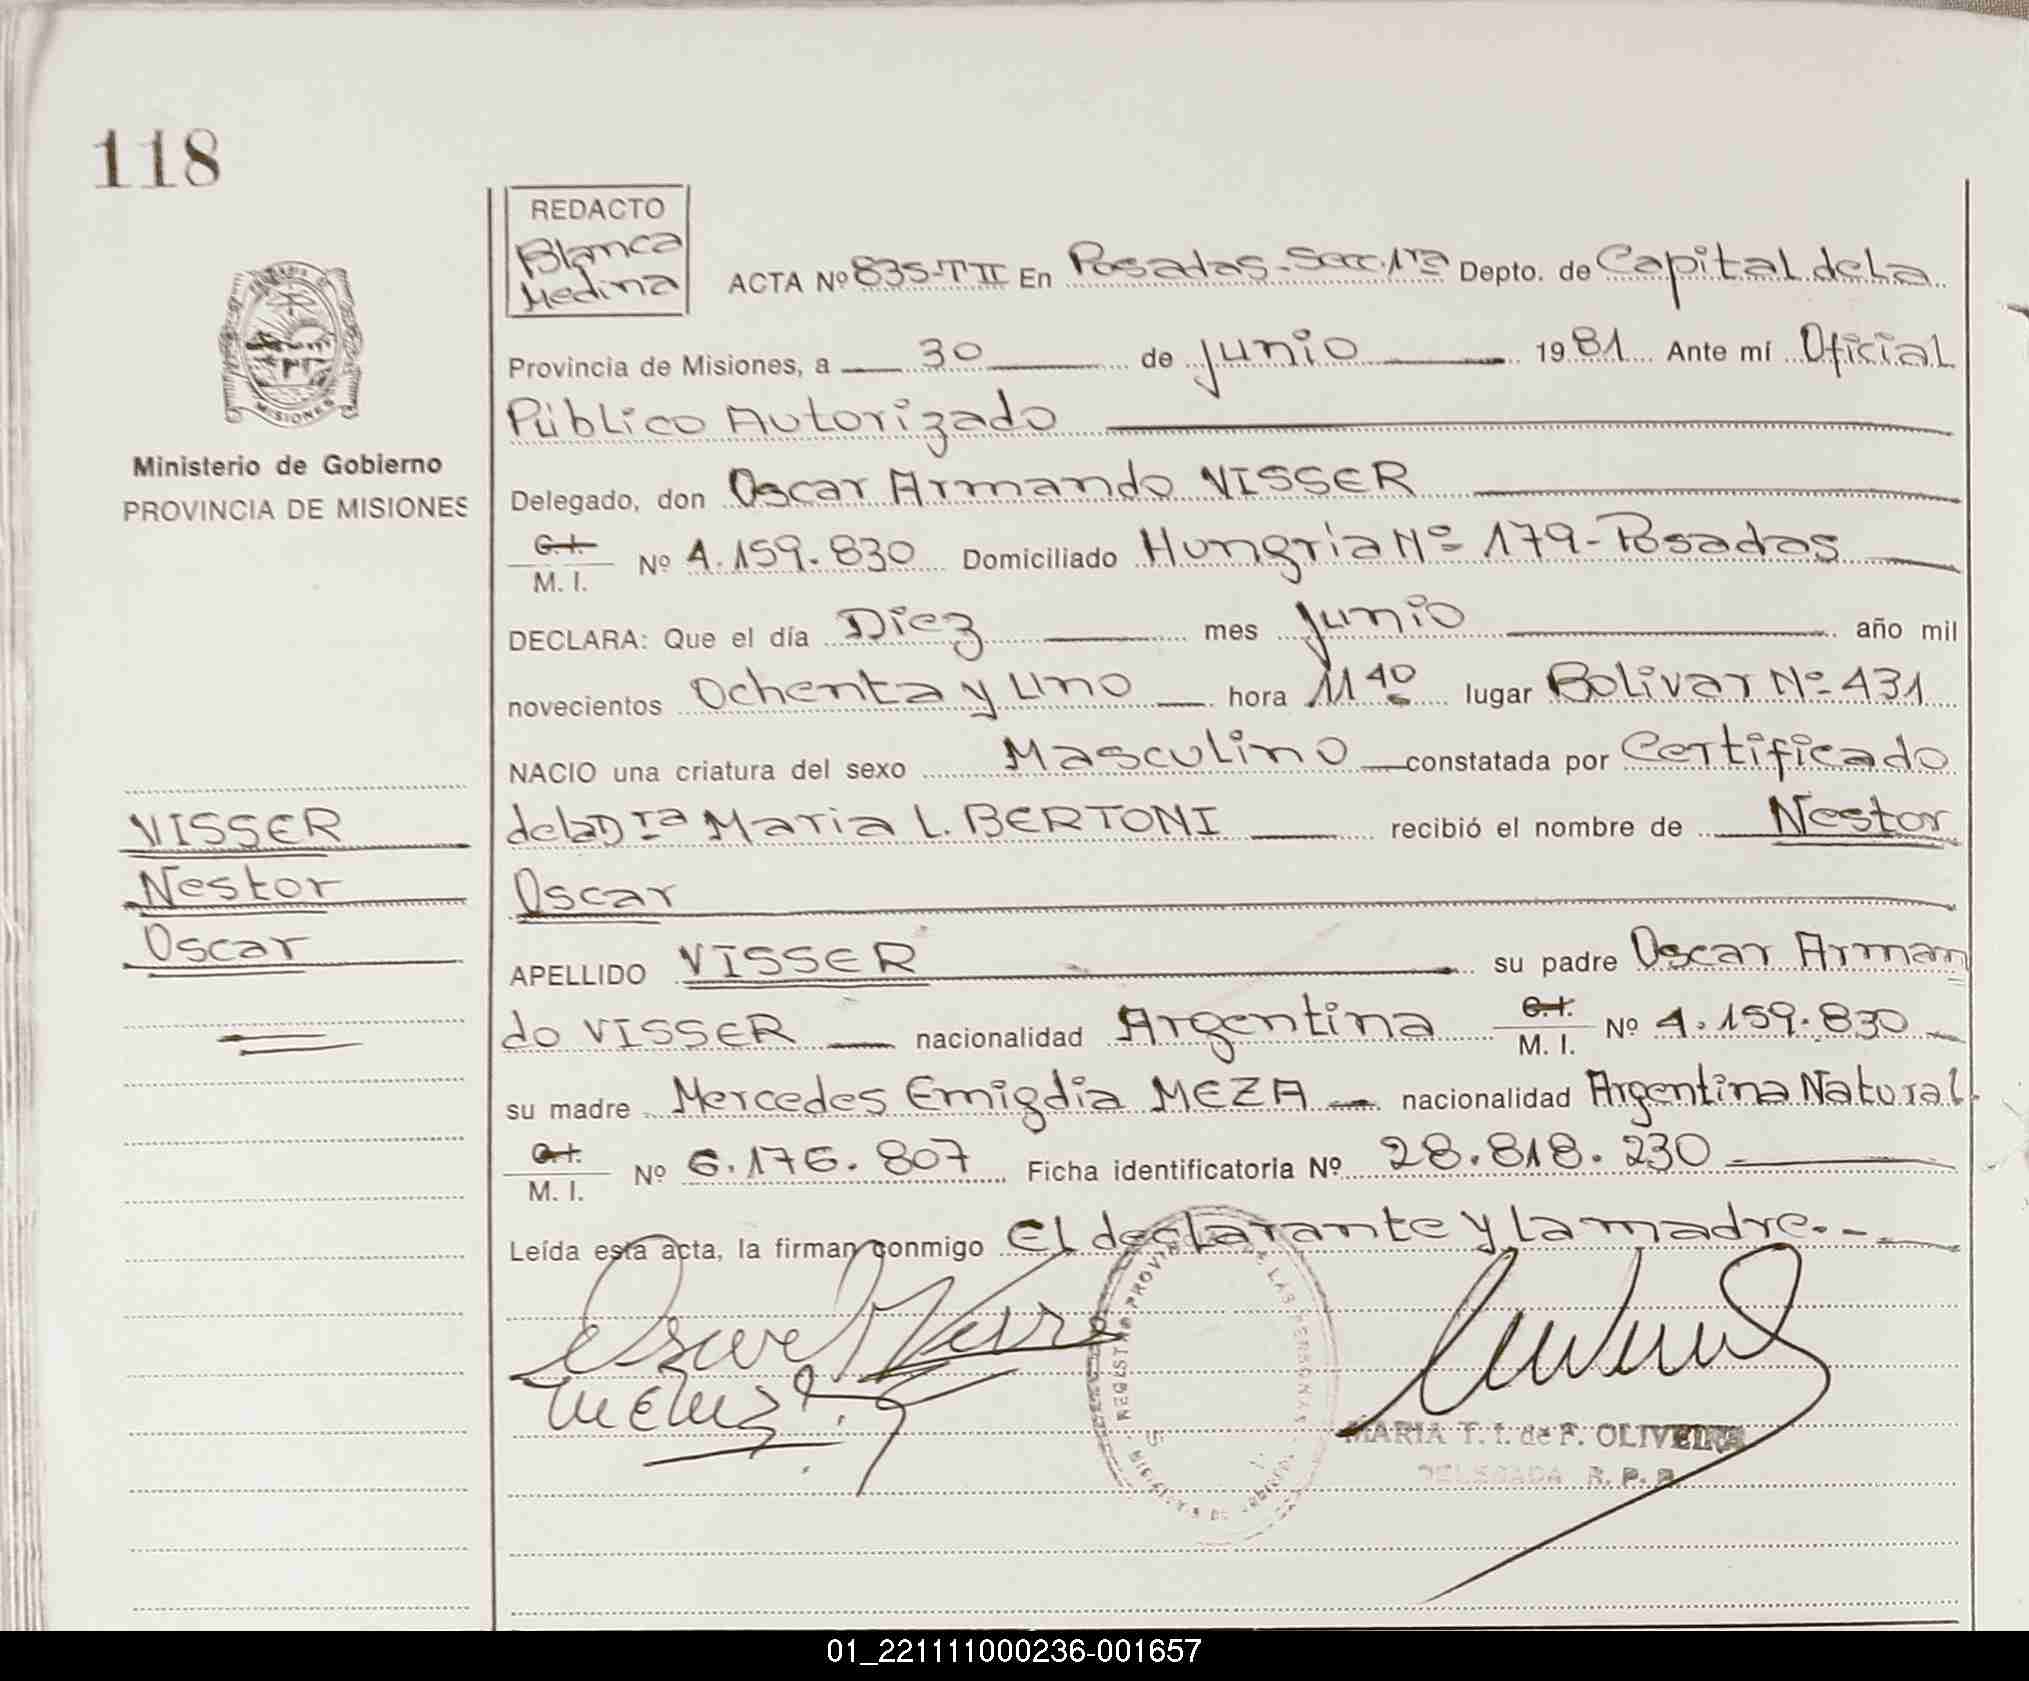 118
REDACTO
Blanca
Medina
ACTA Nº 835-T II En Posadas-Secc.1ra Depto. de Capital de La
Provincia de Misiones, a 30 de junio 1981 Ante mí Oficial
Público Autorizado
Delegado, don Oscar Armando VISSER
C.I.
M. I. Nº 4.159.830 Domiciliado Hungria Nº 179-Posadas
DECLARA: Que el día Diez mes junio año mil
novecientos Ochenta y Uno hora 11 40 lugar Bolivar Nº 431
NACIO una criatura del sexo Masculino constatada por Certificado
de la Dra Maria L. BERTONI recibió el nombre de Nestor
Oscar
APELLIDO VISSER su padre Oscar Arman
do VISSER nacionalidad Argentina C.I.
M. I. Nº 4.159.830
su madre Mercedes Emigdia MEZA nacionalidad Argentina Natural
C.I.
M. I. Nº 6.176.807 Ficha identificatoria Nº 28.818.230
Leída esta acta, la firman conmigo El declarante y la madre.-
MARIA T. I. de F. OLIVEIRA
DELEGADA R. P. P.
MISIONES
Ministerio de Gobierno
PROVINCIA DE MISIONES
VISSER
Nestor
Oscar
01_221111000236-001657